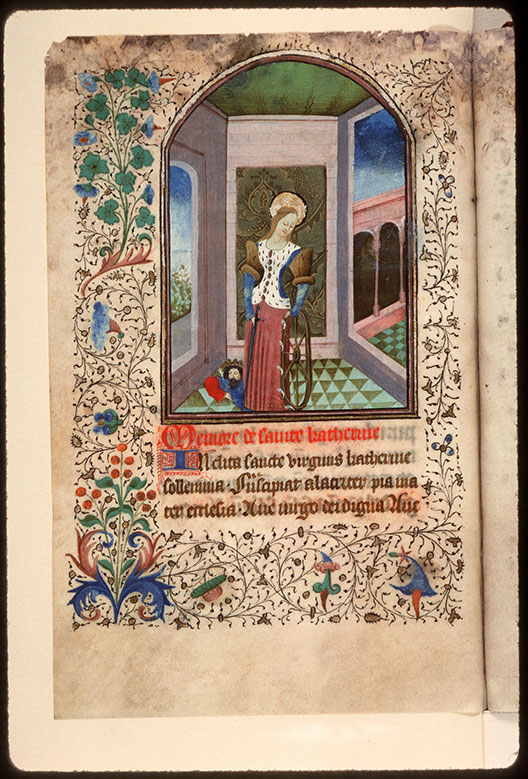 Memore de sainte katherine
Inclita sancte virginis katherine
sollemnia suscipiat alacriter pia ma
ter ecclesia Aue uirgo dei digna Aue